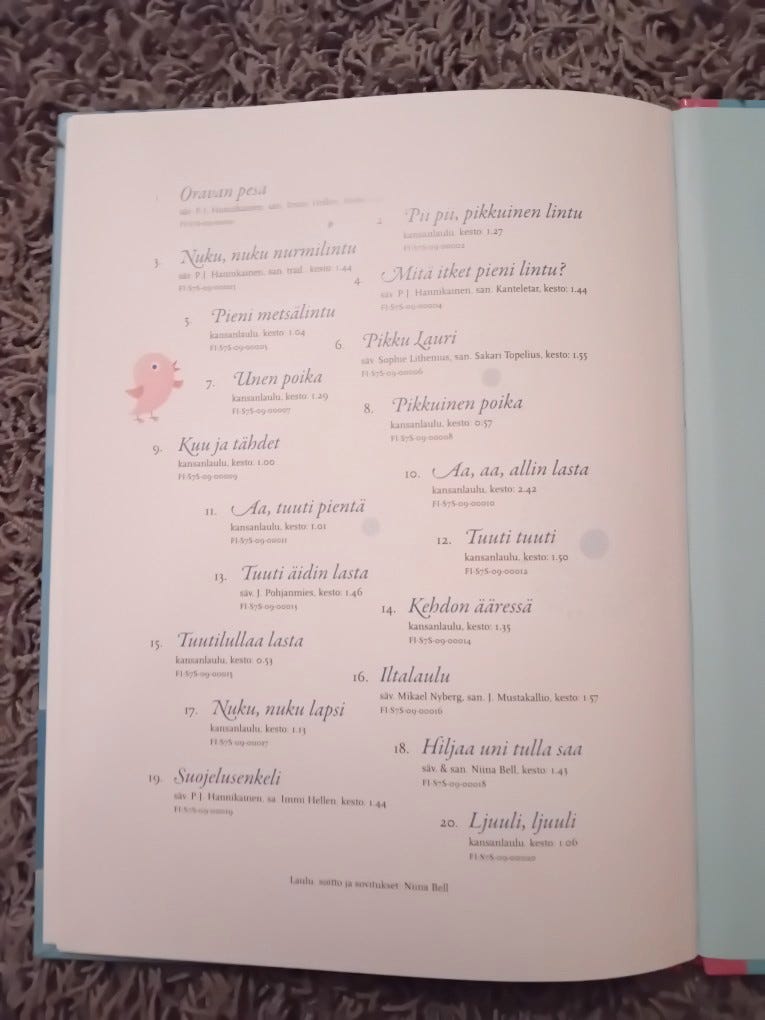 1. Oravan pesä
säv. P.J. Hannikainen, san. Immi Hellen,
2. Pu pu, pikkuinen lintu
kansanlaulu, kesto: 1.27
FI-S7S-09-00002
3. Nuku, nuku nurmilintu
säv. P.J. Hannikainen, san. trad., kesto: 1.44
FI-S7S-09-00003
4. Mitä itket pieni lintu?
säv. P.J. Hannikainen, san. Kanteletar, kesto: 1.44
FI-S7S-09-00004
5. Pieni metsälintu
kansanlaulu, kesto: 1.04
FI-S7S-09-00005
6. Pikku Lauri
säv. Sophie Lithenius, san. Sakari Topelius, kesto: 1.55
FI-S7S-09-00006
7. Unen poika
kansanlaulu, kesto: 1.29
FI-S7S-09-00007
8. Pikkuinen poika
kansanlaulu, kesto: 0.57
FI-S7S-09-00008
9. Kuu ja tähdet
kansanlaulu, kesto: 1.00
FI-S7S-09-00009
10. Aa, aa, allin lasta
kansanlaulu, kesto: 2.42
FI-S7S-09-00010
11. Aa, tuuti pientä
kansanlaulu, kesto: 1.01
FI-S7S-09-00011
12. Tuuti tuuti
kansanlaulu, kesto: 1.50
FI-S7S-09-00012
13. Tuuti äidin lasta
säv. J. Pohjanmies, kesto: 1.46
FI-S7S-09-00013
14. Kehdon ääressä
kansanlaulu, kesto: 1.35
FI-S7S-09-00014
15. Tuutilullaa lasta
kansanlaulu, kesto: 0.53
FI-S7S-09-00015
16. Iltalaulu
säv. Mikael Nyberg, san. J. Mustakallio, kesto: 1.57
FI-S7S-09-00016
17. Nuku, nuku lapsi
kansanlaulu, kesto: 1.13
FI-S7S-09-00017
18. Hiljaa uni tulla saa
säv. & san. Niina Bell, kesto: 1.43
FI-S7S-09-00018
19. Suojelusenkeli
säv. P.J. Hannikainen, sa. Immi Hellen, kesto: 1.44
FI-S7S-09-00019
20. Ljuuli, ljuuli
kansanlaulu, kesto: 1.06
FI-S7S-09-00020
Laulu, soitto ja sovitukset: Niina Bell